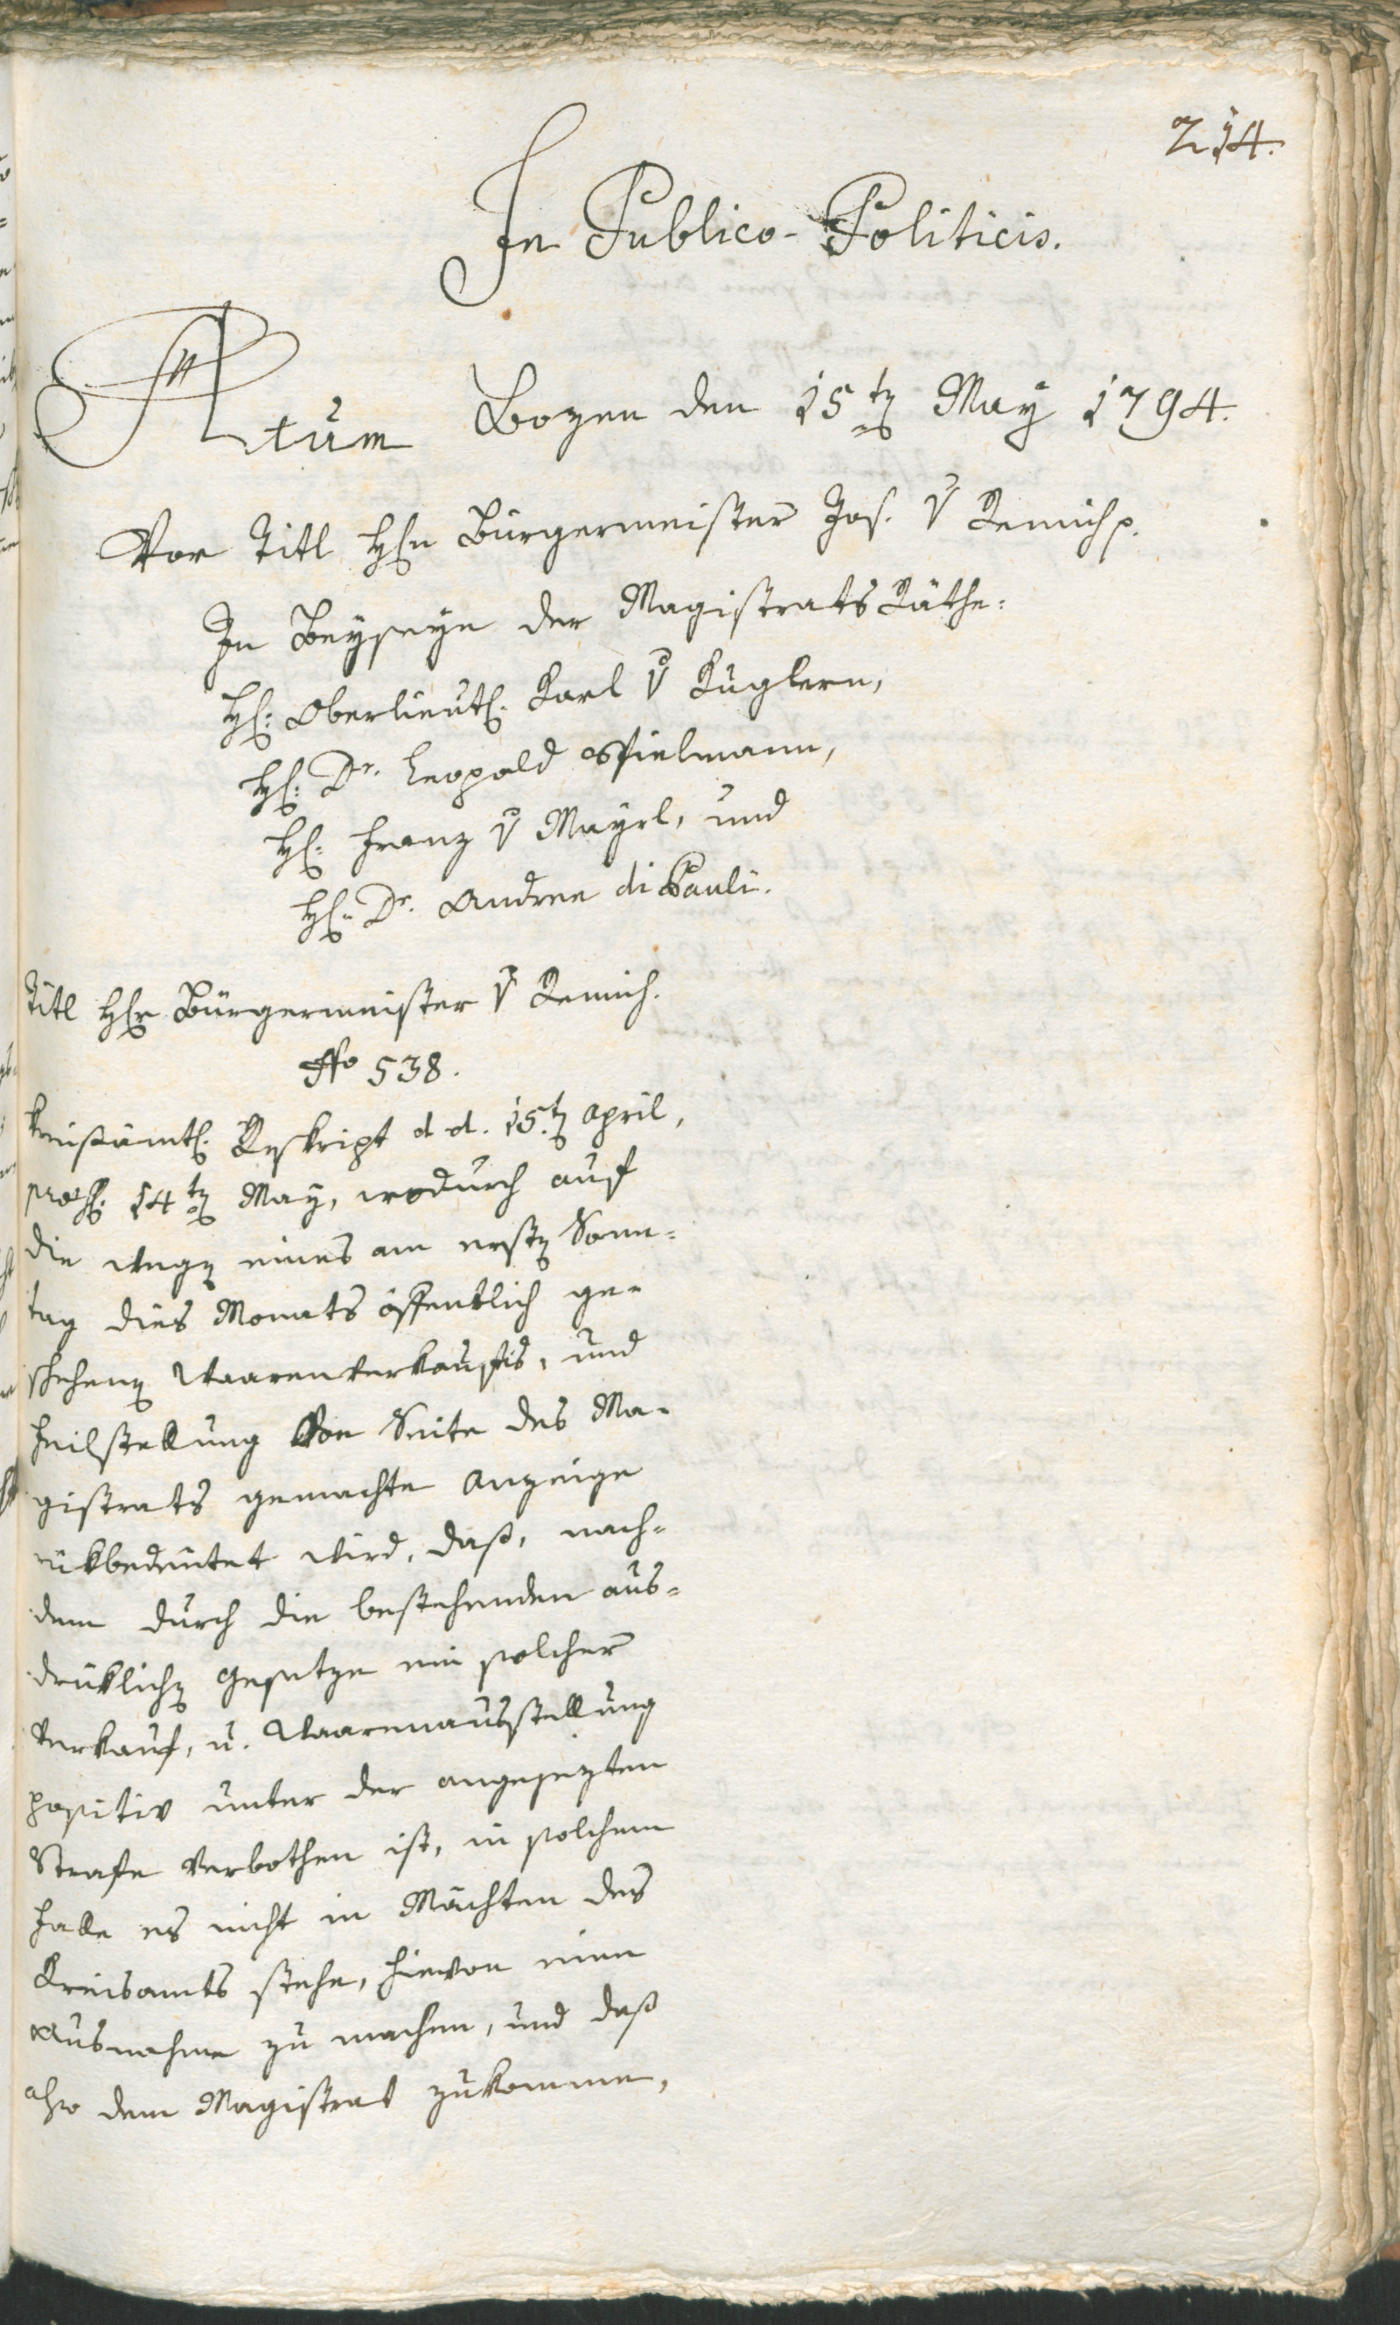 214.
In Publico-Politicis.
Actum Bozen den 15tn May 1794.
Vor Titl Hrn Bürgermeister Jos. v Remich p.
In Beyseyn der Magistrats Räthe:
Hr: Oberlieutl. Karl v Kuglern,
Hr: Dr. Leopold Spielmann,
Hr: Franz v Mayrl, und
Hr: Dr. Andree di Pauli.
Titl Hr Bürgermeister v Remich.
No 538.
Kreisämtl. Reskript d d. 15tn April,
præs. 14tn May, wodurch auf
die wegn eines am erstn Sonn-
tag dies Monats öffentlich ge-
schehenn Waarenverkaufes, und
Feilstellung von Seite des Ma-
gistrats gemachte Anzeige
rükbedeutet wird, daß, nach-
dem durch die bestehenden aus-
drüklichn Gesetze ein solcher
Verkauf, u. Waarenausstellung
positiv unter der angesezten
Strafe verbothen ist, in solchem
Falle es nicht in Mächten des
Kreisamts stehe, hievon eine
Ausnahme zu machen, und daß
also dem Magistrat zukomme,